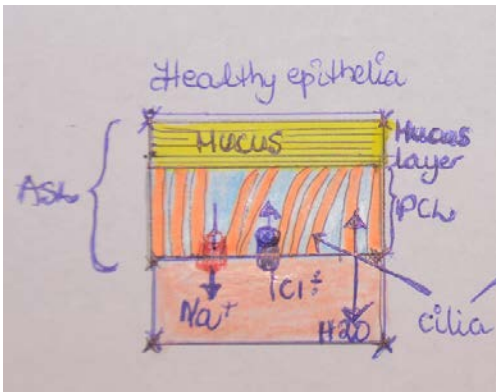 Healthy epithelia
Mucus
Mucus
layer
ASL
PCL
Na+
Cl-
H2O
cilia